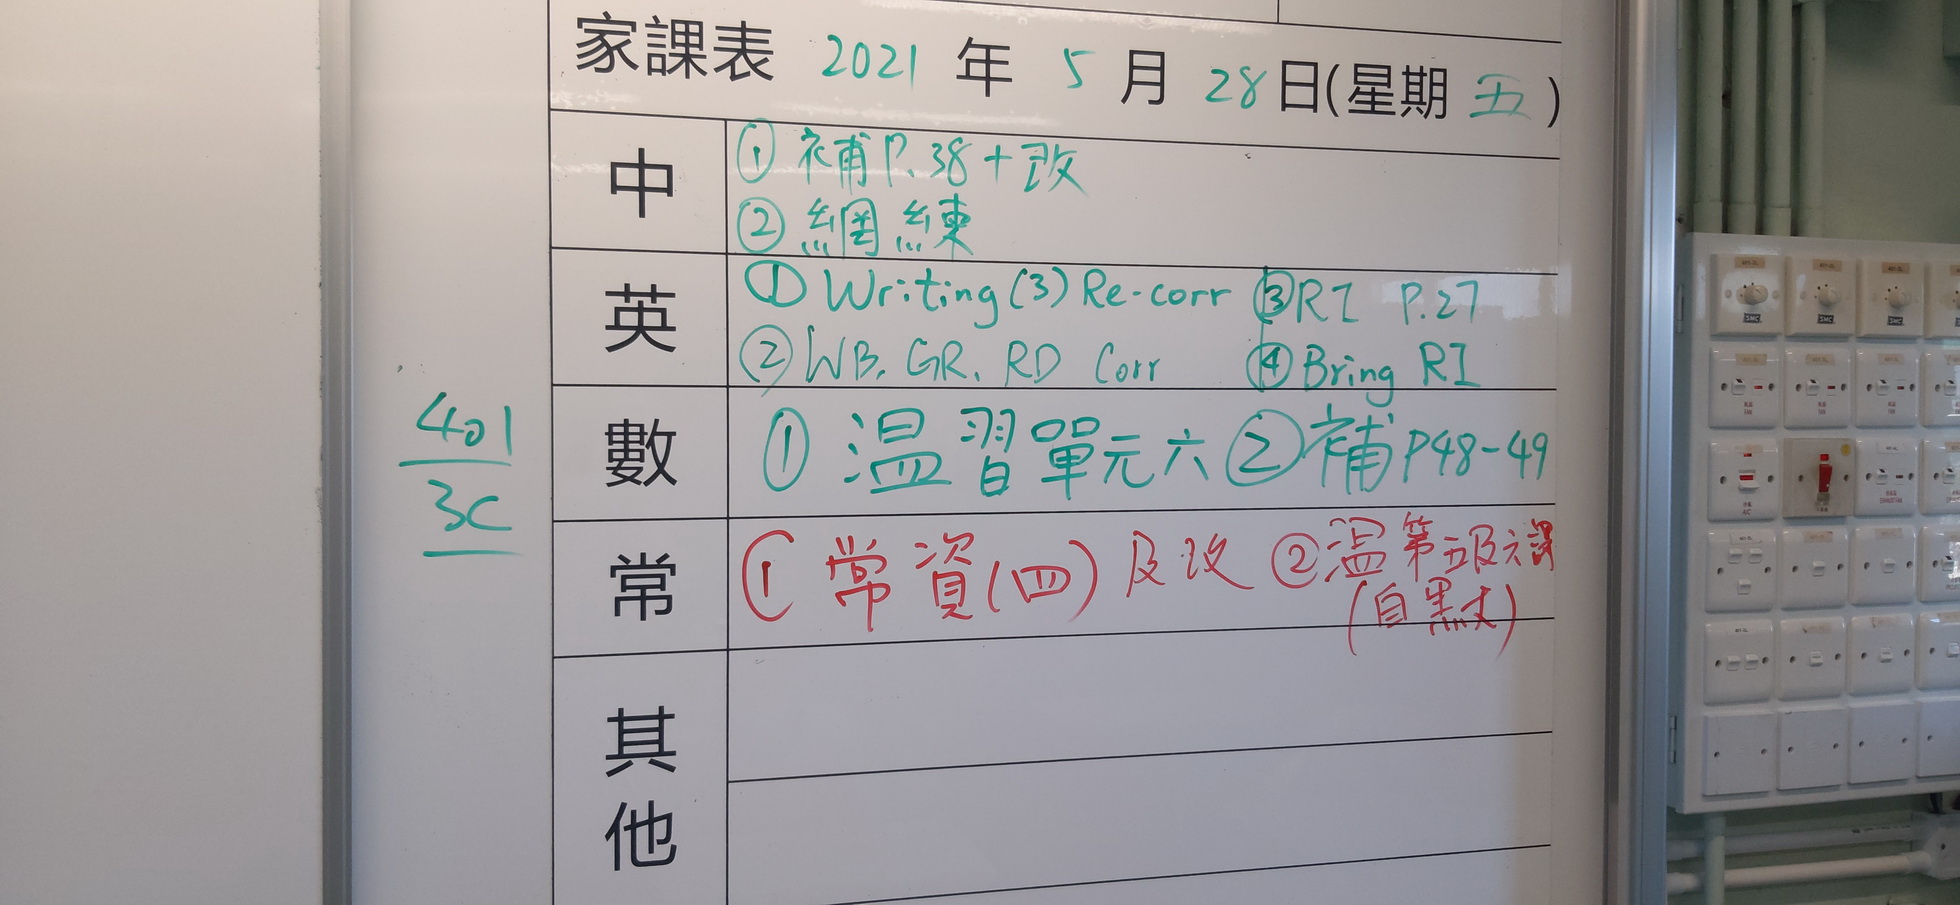 家課表 2021 年 5 月 28 日(星期 五)
中
① 補 P.38 + 改
② 網練
英
① Writing (3) Re-corr ③ RI P.27
② WB, GR, RD Corr ④ Bring RI
數
① 温習單元六 ② 補 P48-49
常
① 常資(四) 及改 ② 温第五及六課
(自默丈)
其他
401
3C